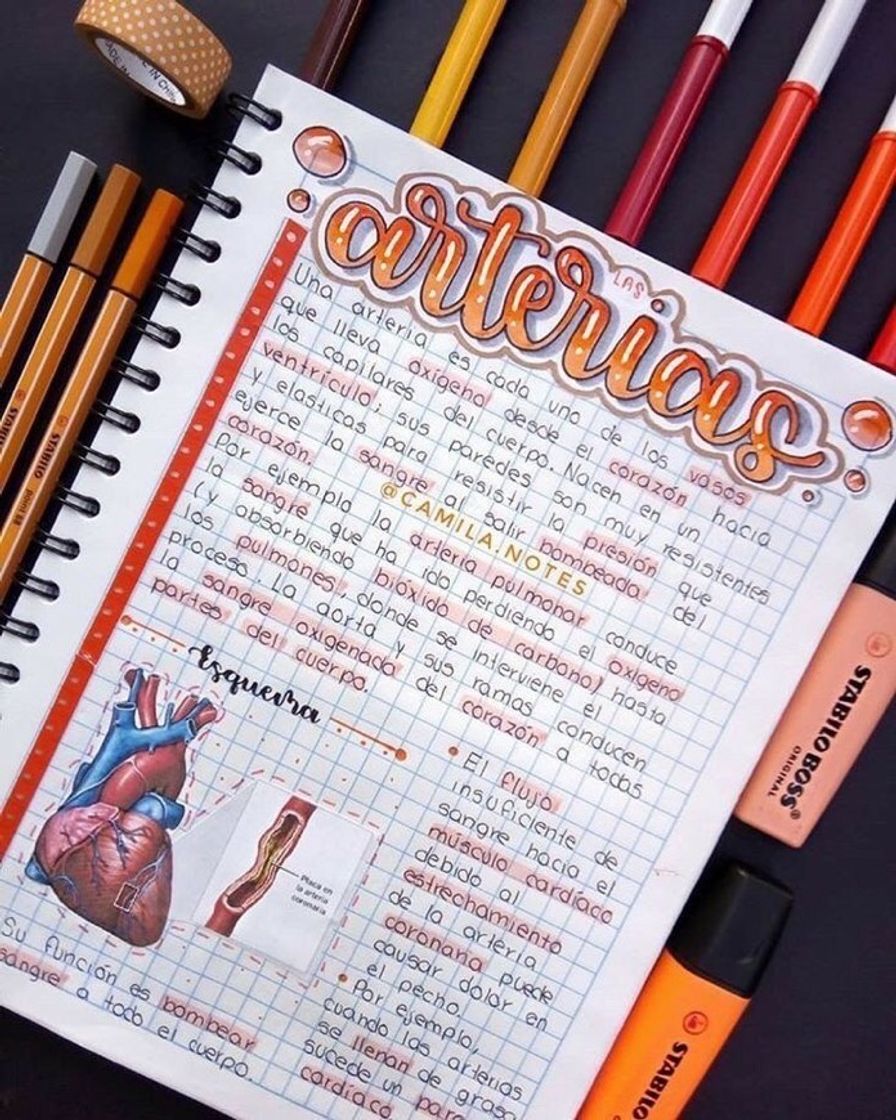 LAS
arterias
Una arteria es cada uno de los vasos
que lleva oxígeno desde el corazón hacia
los capilares del cuerpo. Nacen en un
ventrículo; sus paredes son muy resistentes
y elasticas para resistir la presión que
ejerce la sangre al salir bombeada del
corazón.
@CAMILA.NOTES
Por ejemplo la arteria pulmonar conduce
la sangre que ha ido perdiendo el oxígeno
(y absorbiendo bióxido de carbono) hasta
los pulmones, donde se interviene el
proceso. La aorta y sus ramas conducen
la sangre oxigenada del corazón a todas
partes del cuerpo.
Esquema
Placa en
la arteria
coronaria
Su función es bombear
sangre a todo el cuerpo.
El flujo
insuficiente de
sangre hacia el
músculo cardíaco
debido al
estrechamiento
de la arteria
coronaria puede
causar dolor en
el pecho.
Por ejemplo,
cuando las arterias
se llenan de grasa
sucede un paro
cardíaco
STABILO
point 88
STABILO BOSS
ORIGINAL
STABILO
MADE IN CHINA